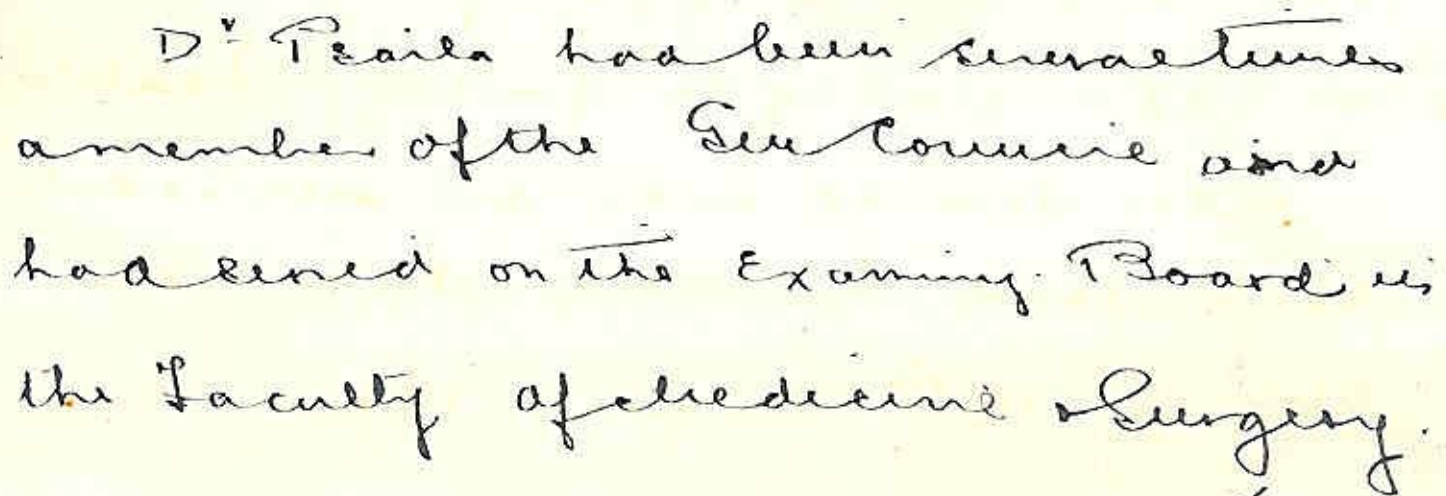 Dr Psaila had been several times
a member of the Gen Council and
had served on the Examing. Board in
the Faculty of Medicine & Surgery.